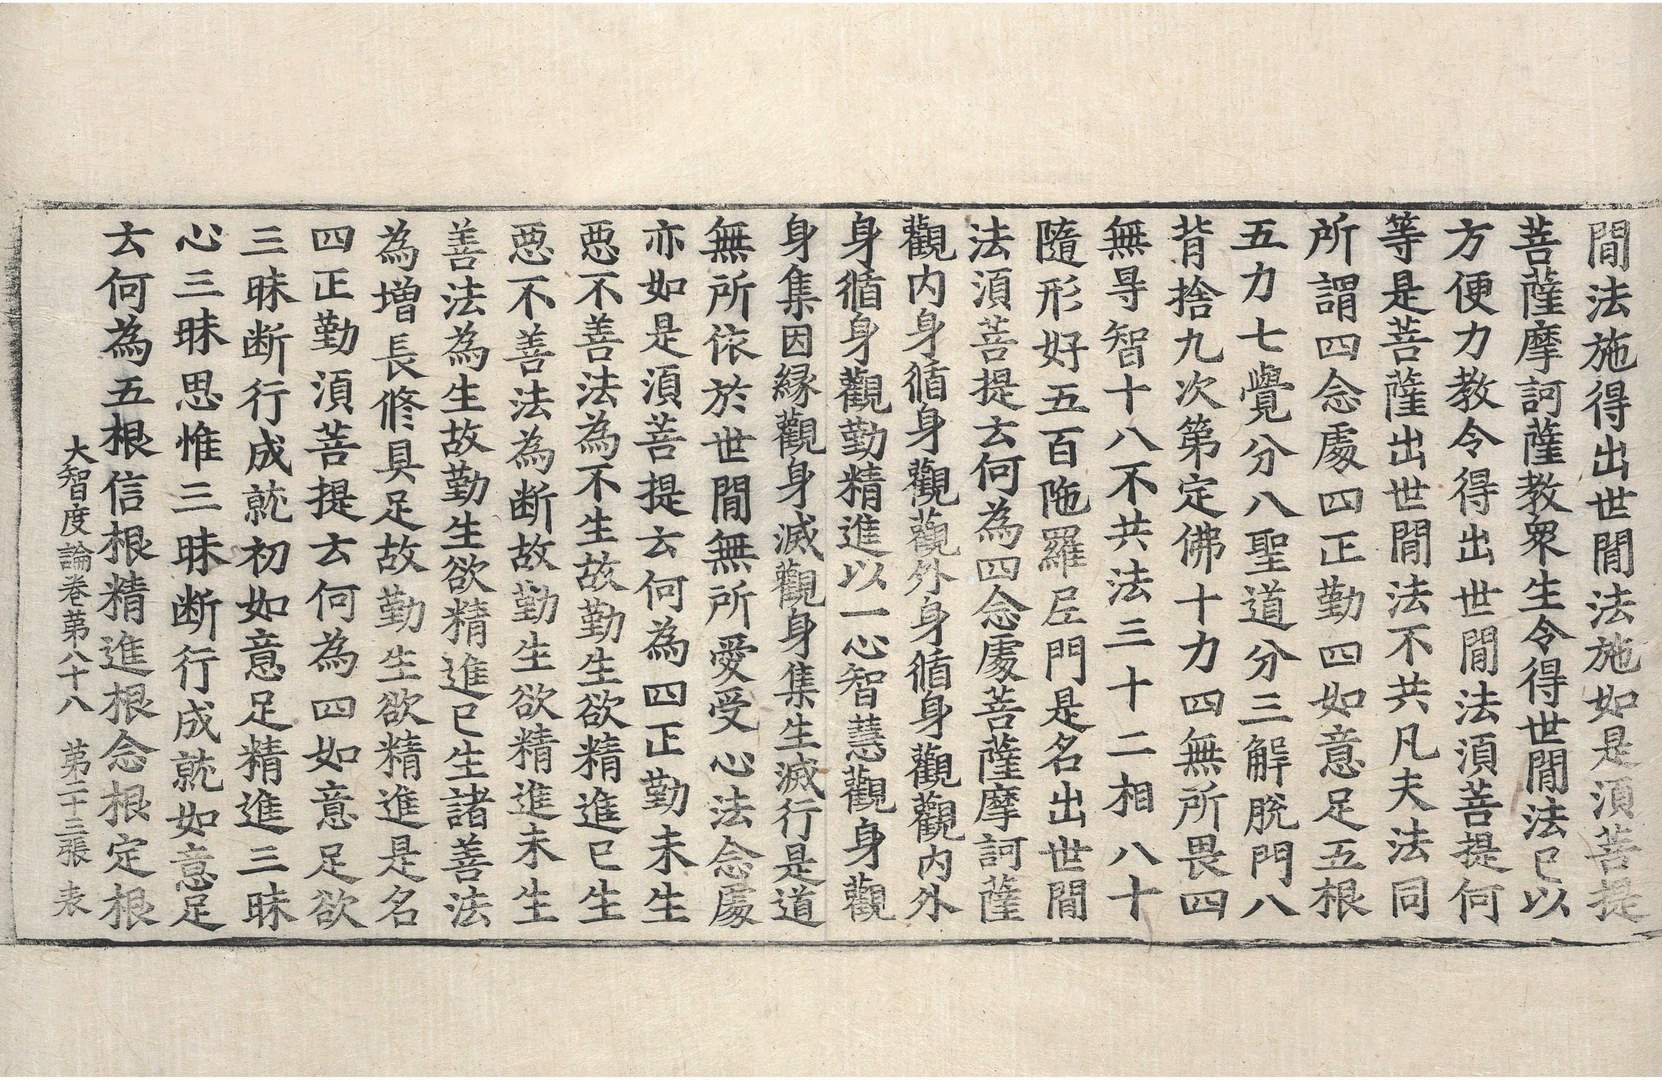 間法施得出世間法施如是湏菩提
菩薩摩訶薩教衆生令得世間法已以
方便力教令得出世間法湏菩提何
等是菩薩出世間法不共凡夫法同
所謂四念處四正勤四如意足五根
五力七覺分八聖道分三解脫門八
背捨九次第定佛十力四無所畏四
無㝵智十八不共法三十二相八十
隨形好五百陁羅𡰱門是名出世間
法湏菩提云何為四念處菩薩摩訶薩
觀内身循身觀觀外身循身觀觀内外
身循身觀勤精進以一心智慧觀身觀
身集因縁觀身滅觀身集生滅行是道
無所依於世間無所愛受心法念處
亦如是湏菩提云何為四正勤未生
惡不善法為不生故勤生欲精進已生
惡不善法為断故勤生欲精進未生
善法為生故勤生欲精進已生諸善法
為增長修具足故勤生欲精進是名
四正勤湏菩提云何為四如意足欲
三昧断行成就初如意足精進三昧
心三昧思惟三昧断行成就如意足
云何為五根信根精進根念根定根
大智度論卷第八十八 第二十三張 表